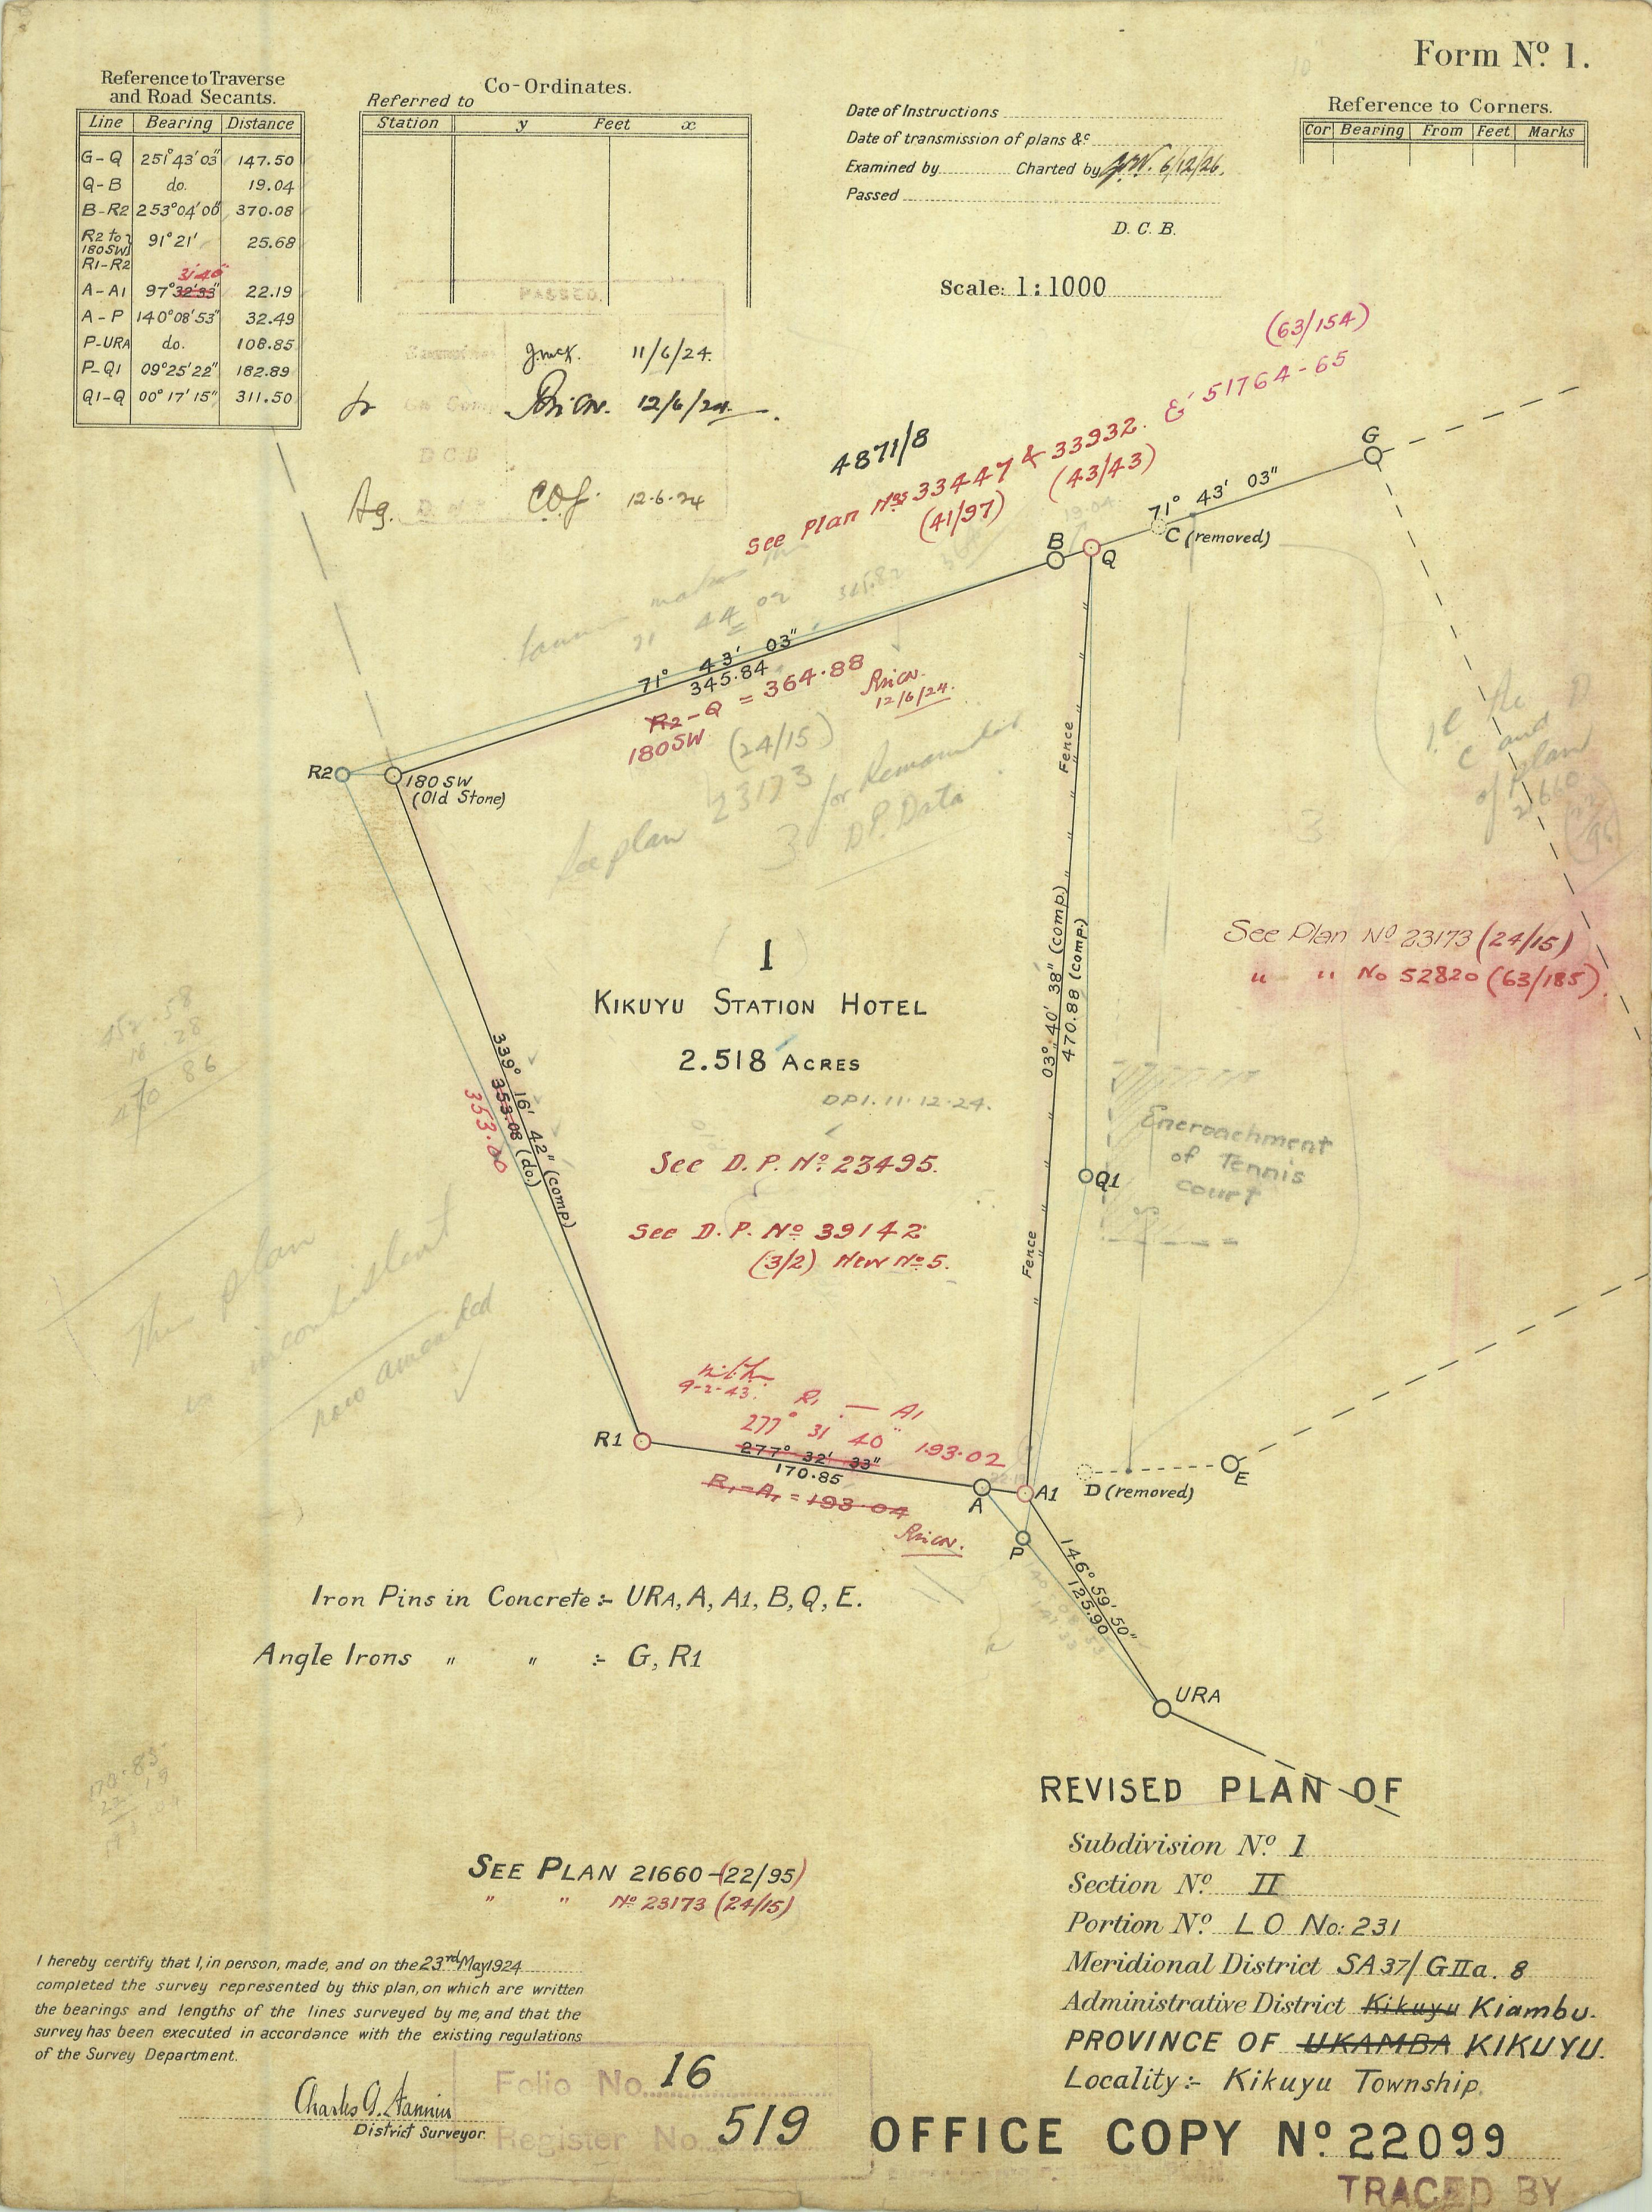 Form Nº 1.
Reference to Traverse
and Road Secants.
Line Bearing Distance
G-Q 251°43'03" 147.50
Q-B do. 19.04
B-R2 253°04'06" 370.08
R2 to
180SW 91°21' 25.68
R1-R2
31'40"
A-A1 97°32'33" 22.19
A-P 140°08'53" 32.49
P-URA do. 108.85
P-Q1 09°25'22" 182.89
Q1-Q 00°17'15" 311.50
Co-Ordinates.
Referred to
Station y Feet x
Date of Instructions
Date of transmission of plans &c
Examined by Charted by 6/12/26.
Passed
D. C. B.
Scale: 1:1000
Reference to Corners.
Cor Bearing From Feet Marks
PASSED.
11/6/24.
12/6/24.
D C B
Ag. 12-6-24
4871/8
See Plan Nos 33447 & 33932. & 51764-65
(41/97) (43/43) (63/154)
G
71° 43' 03"
C (removed)
B
Q
19.04
71° 43' 03"
345.84
R2-Q = 364.88
180SW
12/6/24.
R2
180 SW
(Old Stone)
(24/15)
See plan 23173 for Remainder
3 D.P. Data
Fence
03° 40' 38" (comp.)
470.88 (comp.)
Fence
See Plan Nº 23173 (24/15)
" " No 52820 (63/185)
1
KIKUYU STATION HOTEL
2.518 ACRES
DP1. 11.12.24.
See D. P. Nº 23495.
See D. P. Nº 39142
(3/2) New Nº 5.
339° 16' 42" (comp)
353.08 (do.)
353.00
Encroachment
of Tennis
court
Q1
This plan
is inconsistent
now amended
9-2-43.
R1 — A1
277° 31' 40" 193.02
277° 32' 33"
170.85
R1-A1 = 193.04
R1
A
A1
D (removed)
E
P
146° 59' 50"
125.90
URA
Iron Pins in Concrete :- URA, A, A1, B, Q, E.
Angle Irons " " :- G, R1
REVISED PLAN OF
Subdivision Nº 1
Section Nº II
Portion Nº L O No: 231
Meridional District SA 37/ G II a. 8
Administrative District Kikuyu Kiambu.
PROVINCE OF UKAMBA KIKUYU.
Locality:- Kikuyu Township.
SEE PLAN 21660-(22/95)
" " Nº 23173 (24/15)
I hereby certify that I, in person, made, and on the 23rd May 1924
completed the survey represented by this plan, on which are written
the bearings and lengths of the lines surveyed by me, and that the
survey has been executed in accordance with the existing regulations
of the Survey Department.
District Surveyor.
Folio No. 16
Register No. 519
OFFICE COPY Nº 22099
TRACED BY